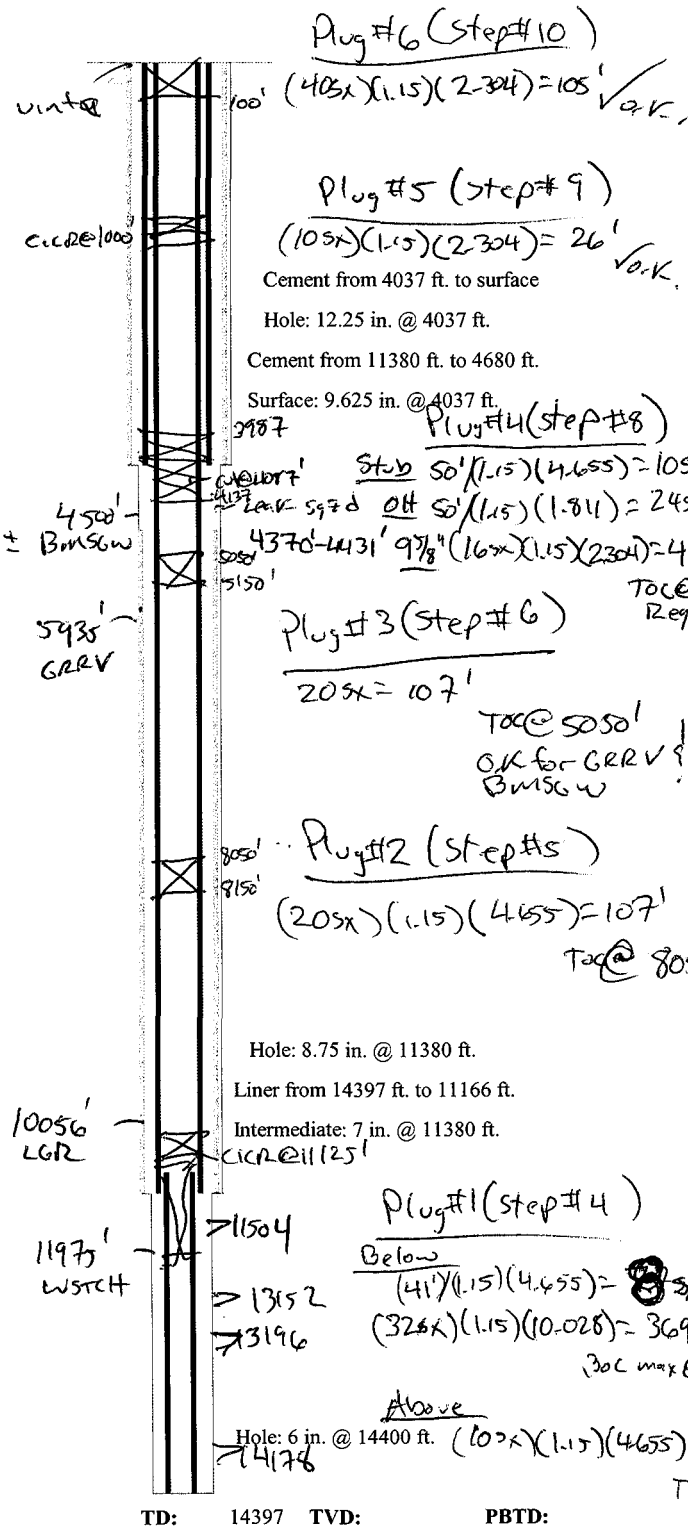 Plug #6 (Step #10)
(40sx)(1.15)(2.304)=105' ✓ O.K.
Uinta
100'
Plug #5 (Step #9)
CICR@1000'
(10sx)(1.15)(2.304)= 26' ✓ O.K.
Cement from 4037 ft. to surface
Hole: 12.25 in. @ 4037 ft.
Cement from 11380 ft. to 4680 ft.
Surface: 9.625 in. @ 4037 ft.
3987
Plug #4 (step #8)
Stub 50'/(1.15)(4.655)=10s
4137
OH 50'/(1.15)(1.811)= 24s
4500'
± BMSGW
9 5/8" (16sx)(1.15)(2.304)=4
5050'
5150'
TOC@
Req
5935'
GRRV
Plug #3 (Step #6)
20sx= 107'
TOC@ 5050'
O.K for GRRV &
BMSGW
8050'
8150'
Plug #2 (Step #5)
(20sx)(1.15)(4.655)=107'
TOC@ 805
Hole: 8.75 in. @ 11380 ft.
Liner from 14397 ft. to 11166 ft.
Intermediate: 7 in. @ 11380 ft.
10056'
LGR
CICR@11125'
Plug #1 (Step #4)
11504
Below
11975'
WSTCH
(41')/(1.15)(4.655)=
13152
(32sx)(1.15)(10.028)= 369
13196
BOC max
Above
Hole: 6 in. @ 14400 ft. (10sx)(1.15)(4.655)
14178
T
TD: 14397 TVD: PBTD: